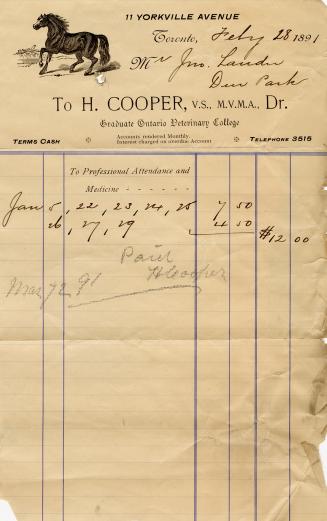 11 YORKVILLE AVENUE
Toronto, Feby 28 1891
Mr Jno. Lander
Deer Park
To H. COOPER, V.S., M.V.M.A., Dr.
Graduate Ontario Veterinary College
TERMS CASH
Accounts rendered Monthly.
Interest charged on overdue Account
TELEPHONE 3515
To Professional Attendance and
Medicine - - - - - -
Jan 5, 22, 23, 24, 25 7 50
26, 27, 29 4 50 $12 00
Paid
H Cooper
Mar 2 91